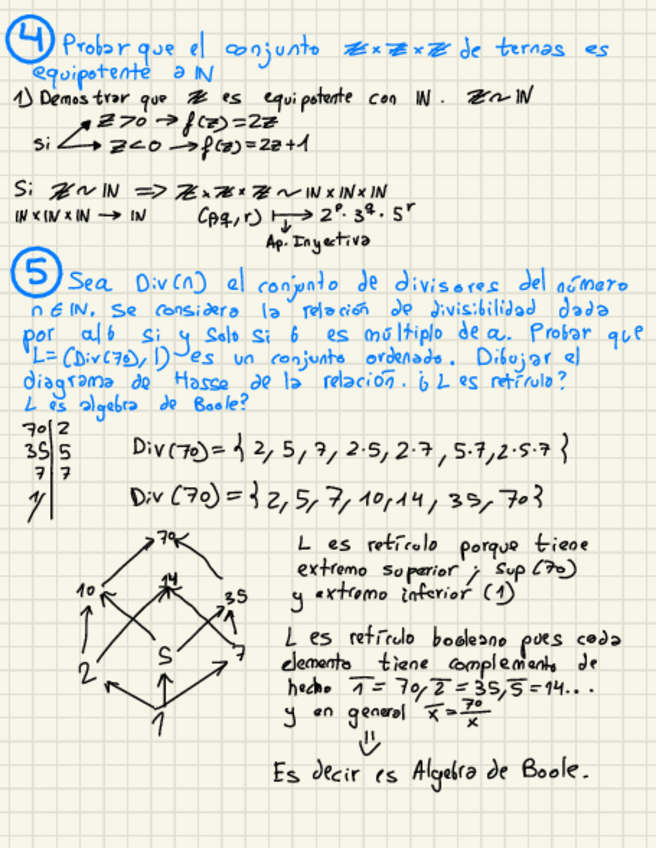 4 Probar que el conjunto ℤ×ℤ×ℤ de ternas es
equipotente a IN
1) Demostrar que ℤ es equipotente con IN. ℤ~IN
Si
z>0 → f(z)=2z
z<0 → f(z)=2z+1
Si ℤ~IN => ℤ×ℤ×ℤ ~ IN×IN×IN
IN×IN×IN → IN (p,q,r) ↦ 2^p · 3^q · 5^r
↓
Ap. Inyectiva
5 Sea Div(n) el conjunto de divisores del número
n ∈ IN. Se considera la relación de divisibilidad dada
por a|b si y solo si b es múltiplo de a. Probar que
L=(Div(70), |) es un conjunto ordenado. Dibujar el
diagrama de Hasse de la relación. ¿L es retículo?
L es algebra de Boole?
70|2
35|5 Div(70) = { 2, 5, 7, 2·5, 2·7, 5·7, 2·5·7 }
7|7
1| Div(70) = {2, 5, 7, 10, 14, 35, 70}
70
10 14 35
2 5 7
1
L es retículo porque tiene
extremo superior; sup(70)
y extremo inferior (1)
L es retículo booleano pues cada
elemento tiene complemento de
hecho 1̅ = 70, 2̅ = 35, 5̅ = 14...
y en general x̅ = 70/x
⇓
Es decir es Algebra de Boole.